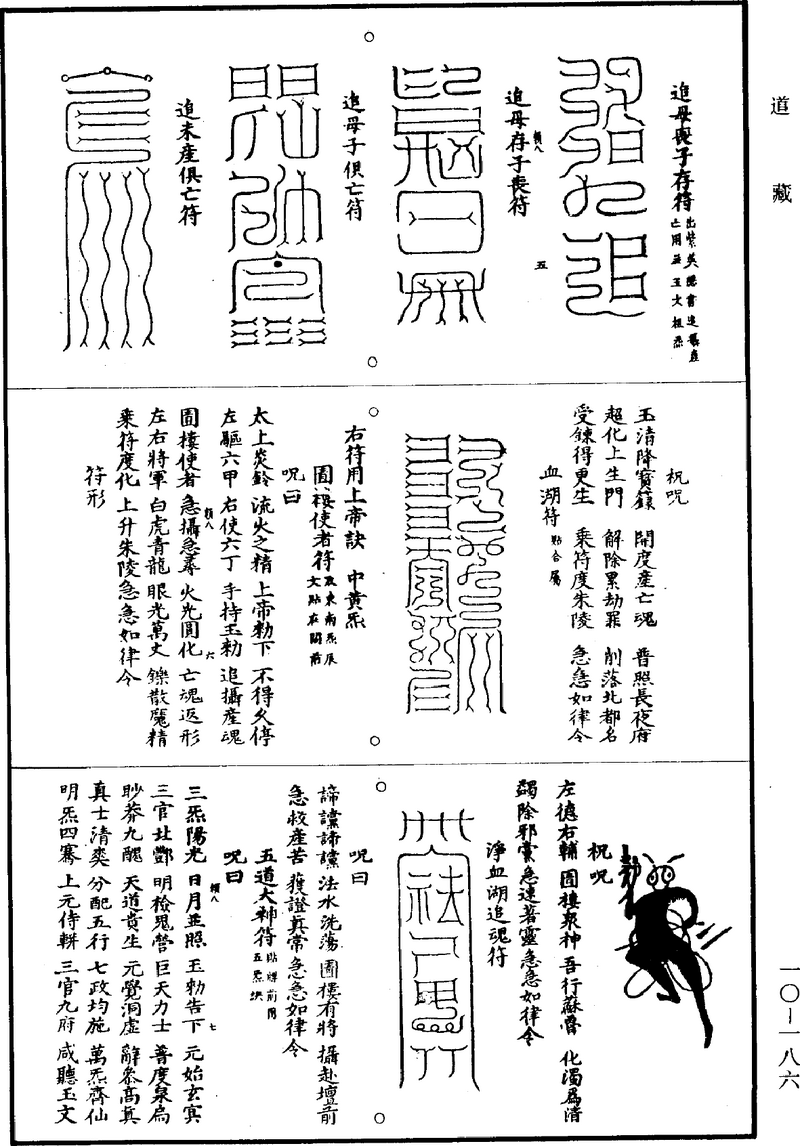 道藏
追母喪子存符
出紫英
追母存子喪符
五
追母子俱亡符
追未產俱亡符
祝咒
玉清降寶籙 開度產亡魂 普照長夜府
超化上生門 解除累劫罪 削落北都名
受鍊得更生 乘符度朱陵 急急如律令
血湖符
右符用上帝訣 中黃炁
使者符
咒曰
太上炎鈴 流火之精 上帝勑下 不得久停
左驅六甲 右使六丁 手持玉勑 追攝產魂
使者 急攝急尋 火光圓化 亡魂返形
六
左右將軍 白虎青龍 眼光萬丈 鑠散魔精
乘符度化 上升朱陵 急急如律令
符形
左德右輔 衆神 吾行蘇魯 化濁爲清
蠲除邪 急速著靈 急急如律令
祝咒
淨血湖追魂符
咒曰
法水洗蕩 有將 攝赴壇前
急救產苦 獲證真常 急急如律令
五道大神符
咒曰
三炁陽光 日月並照 玉勑告下 元始玄冥
七
三官北酆 明檢鬼營 巨天力士 普度泉扃
眇莽九醜 天道貴生 元覺洞虛 辭參高真
真士清奕 分配五行 七政均施 萬炁齊仙
明炁四騫 上元侍軿 三官九府 咸聽玉文
一〇-一八六